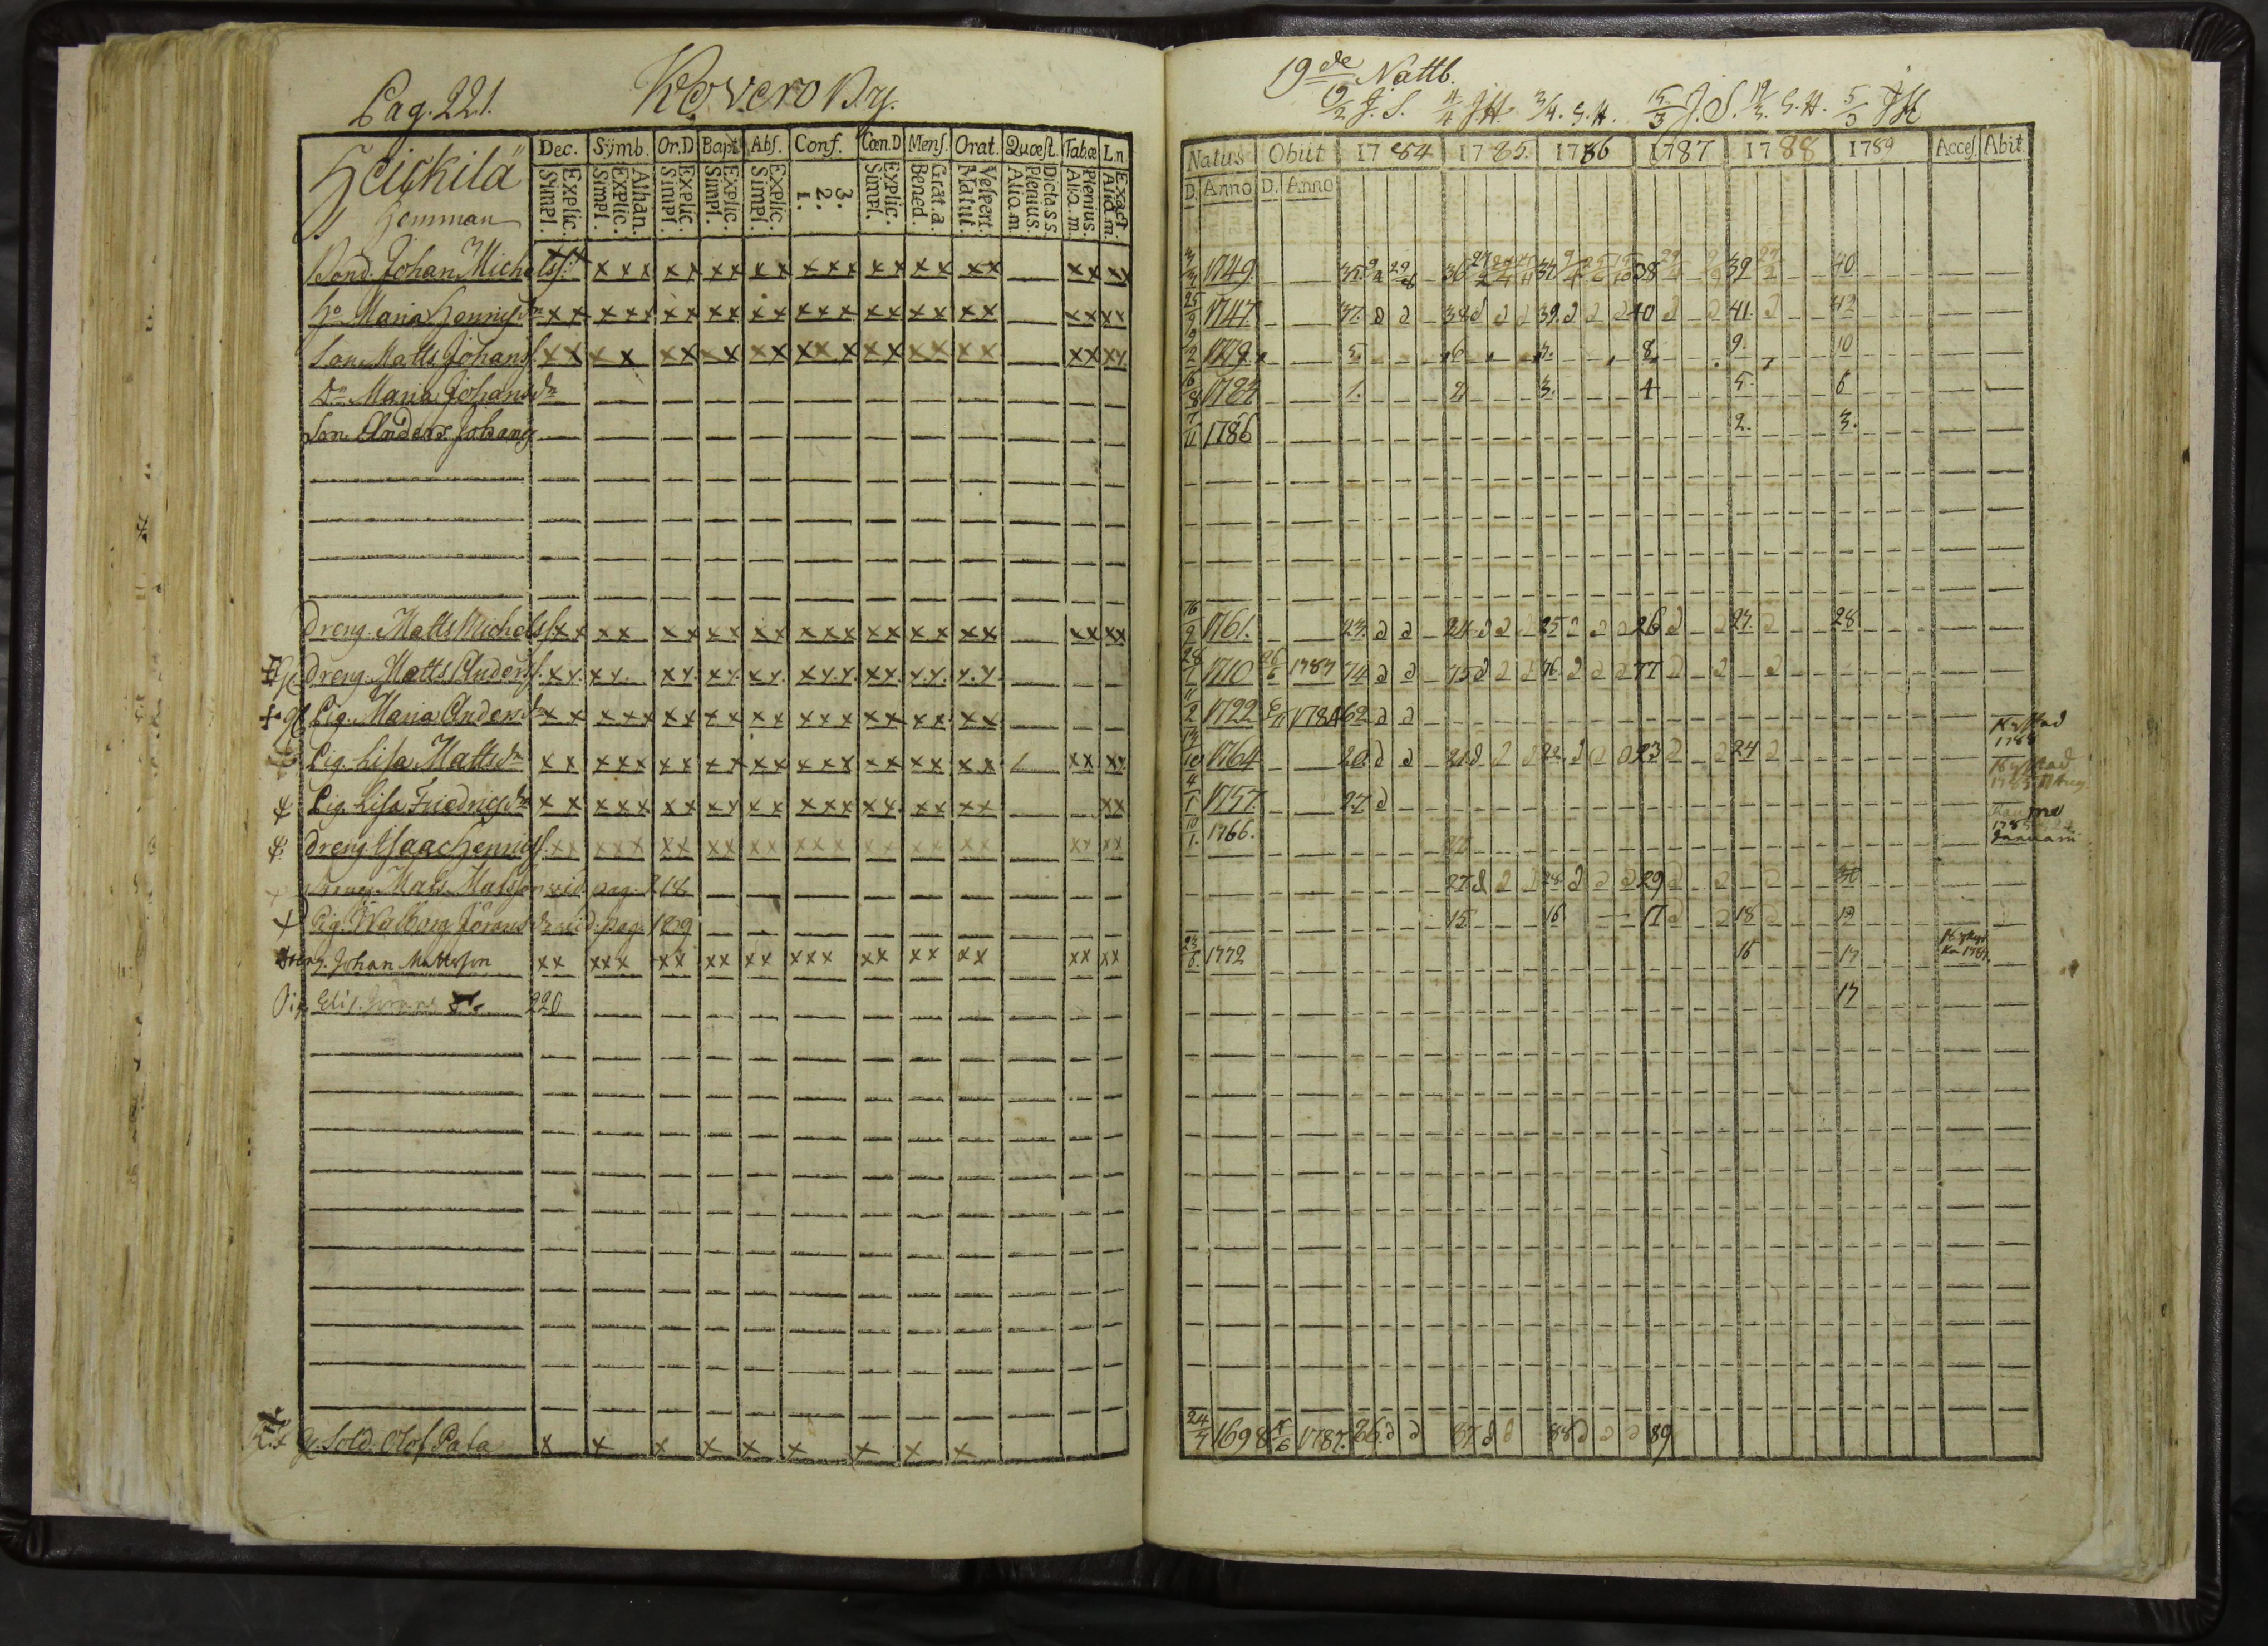 Pag. 221. Kovero By.
Heickilä Hemman
Dec. Symb. Or.D Bapt Abs. Conf. Cœn.D Mens. Orat. Quæst. Tabæ L.n.
Explic. Simpl. Athan. Explic. Simpl. Explic. Simpl. Explic. Simpl. Explic. Simpl. 3. 2. 1. Explic. Simpl. Grat.a. Bened. Vespert. Matut. Dicta S S. Plenius. Alio.m. Plenius. Alio.m. Exact. Alio.m.
Bond. Johan Michelss. xx xxx xx xx xx xxx xx xx xx xx xx
Ho Maria Henricsdr xx xxx xx xx xx xxx xx xx xx xx xx
Son. Matts Johanss. xx xx xx xx xx xxx xx xx xx xx xx
Dr Maria Johansdr
Son. Anders Johanss
Dreng. Matts Michelss xx xx xx xx xx xxx xx xx xx xx xx
Dreng. Matts Anderss. xx xx xx xx xx xxx xx xx xx
Pig. Maria Andersdr xx xxx xx xx xx xxx xx xx xx
Pig. Lisa Mattsdr xx xxx xx xx xx xxx xx xx xx xx xx
Pig. Lisa Friedricsdr xx xxx xx xx xx xxx xx xx xx xx
Dreng. Isaac Henricss. xx xxx xx xx xx xxx xx xx xx xx xx
Dreng. Mats Matsson vid. pag. 218
Pig. Walborg Jöransdr vid. pag. 189
Dreng. Johan Mattsson xx xxx xx xx xx xxx xx xx xx xx xx
Pig. Elis. 220
Sold. Olof Pata x x x x x x x x x
19de Nattb.
19/2 J. S. 4/4 J.H. 3/4. G. H. 15/3 J. S. 19/3. G. H. 5/3 JH
Natus Obiit 1784 1785. 1786 1787 1788 1789 Access Abit
D. Anno D. Anno
1749. 35. 36 37. 38 39 40
25/9 1747. 37. 38 39. 40 41. 42
9/2 1779. 5. 6 7. 8. 9. 10
16/8 1783 1. 2 3. 4 5. 6
7/11 1786 2. 3.
16/9 1761. 23. 24 25 26 27. 28
1710 26/6 1787 74 75 76. 77
11/2 1722 1784 62
1764 20 21 22 23 24 1788
4/1 1757. 27
10/1. 1766.
27 28 29
15 16 17 18 19
1772 16 17
17
24/7 1698 1787. 86. 87 88 89